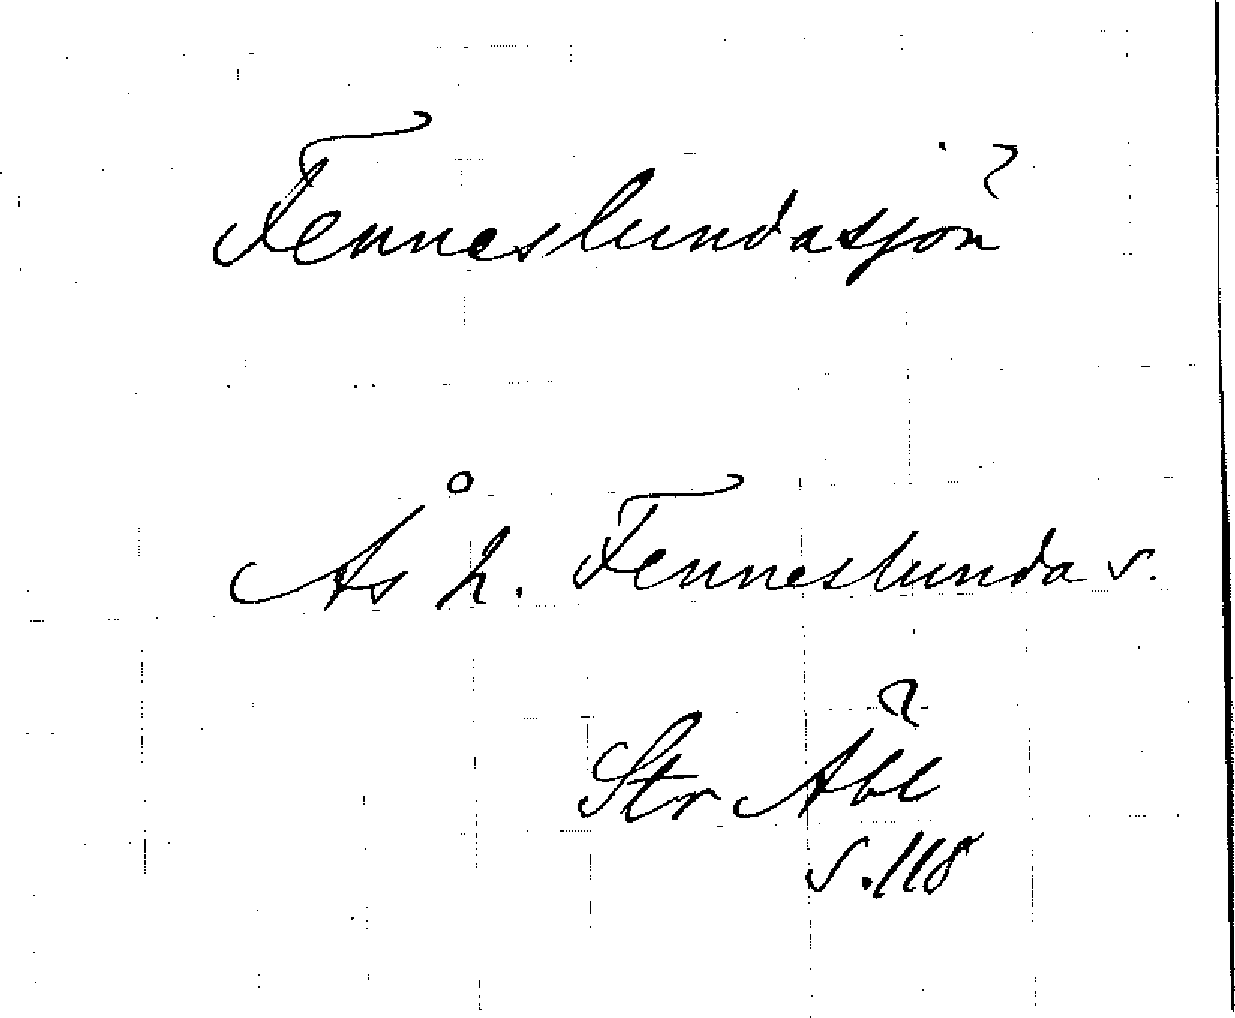 Fenneslundasjön
Ås h. Fenneslunda s.
Str Äbl
s. 118